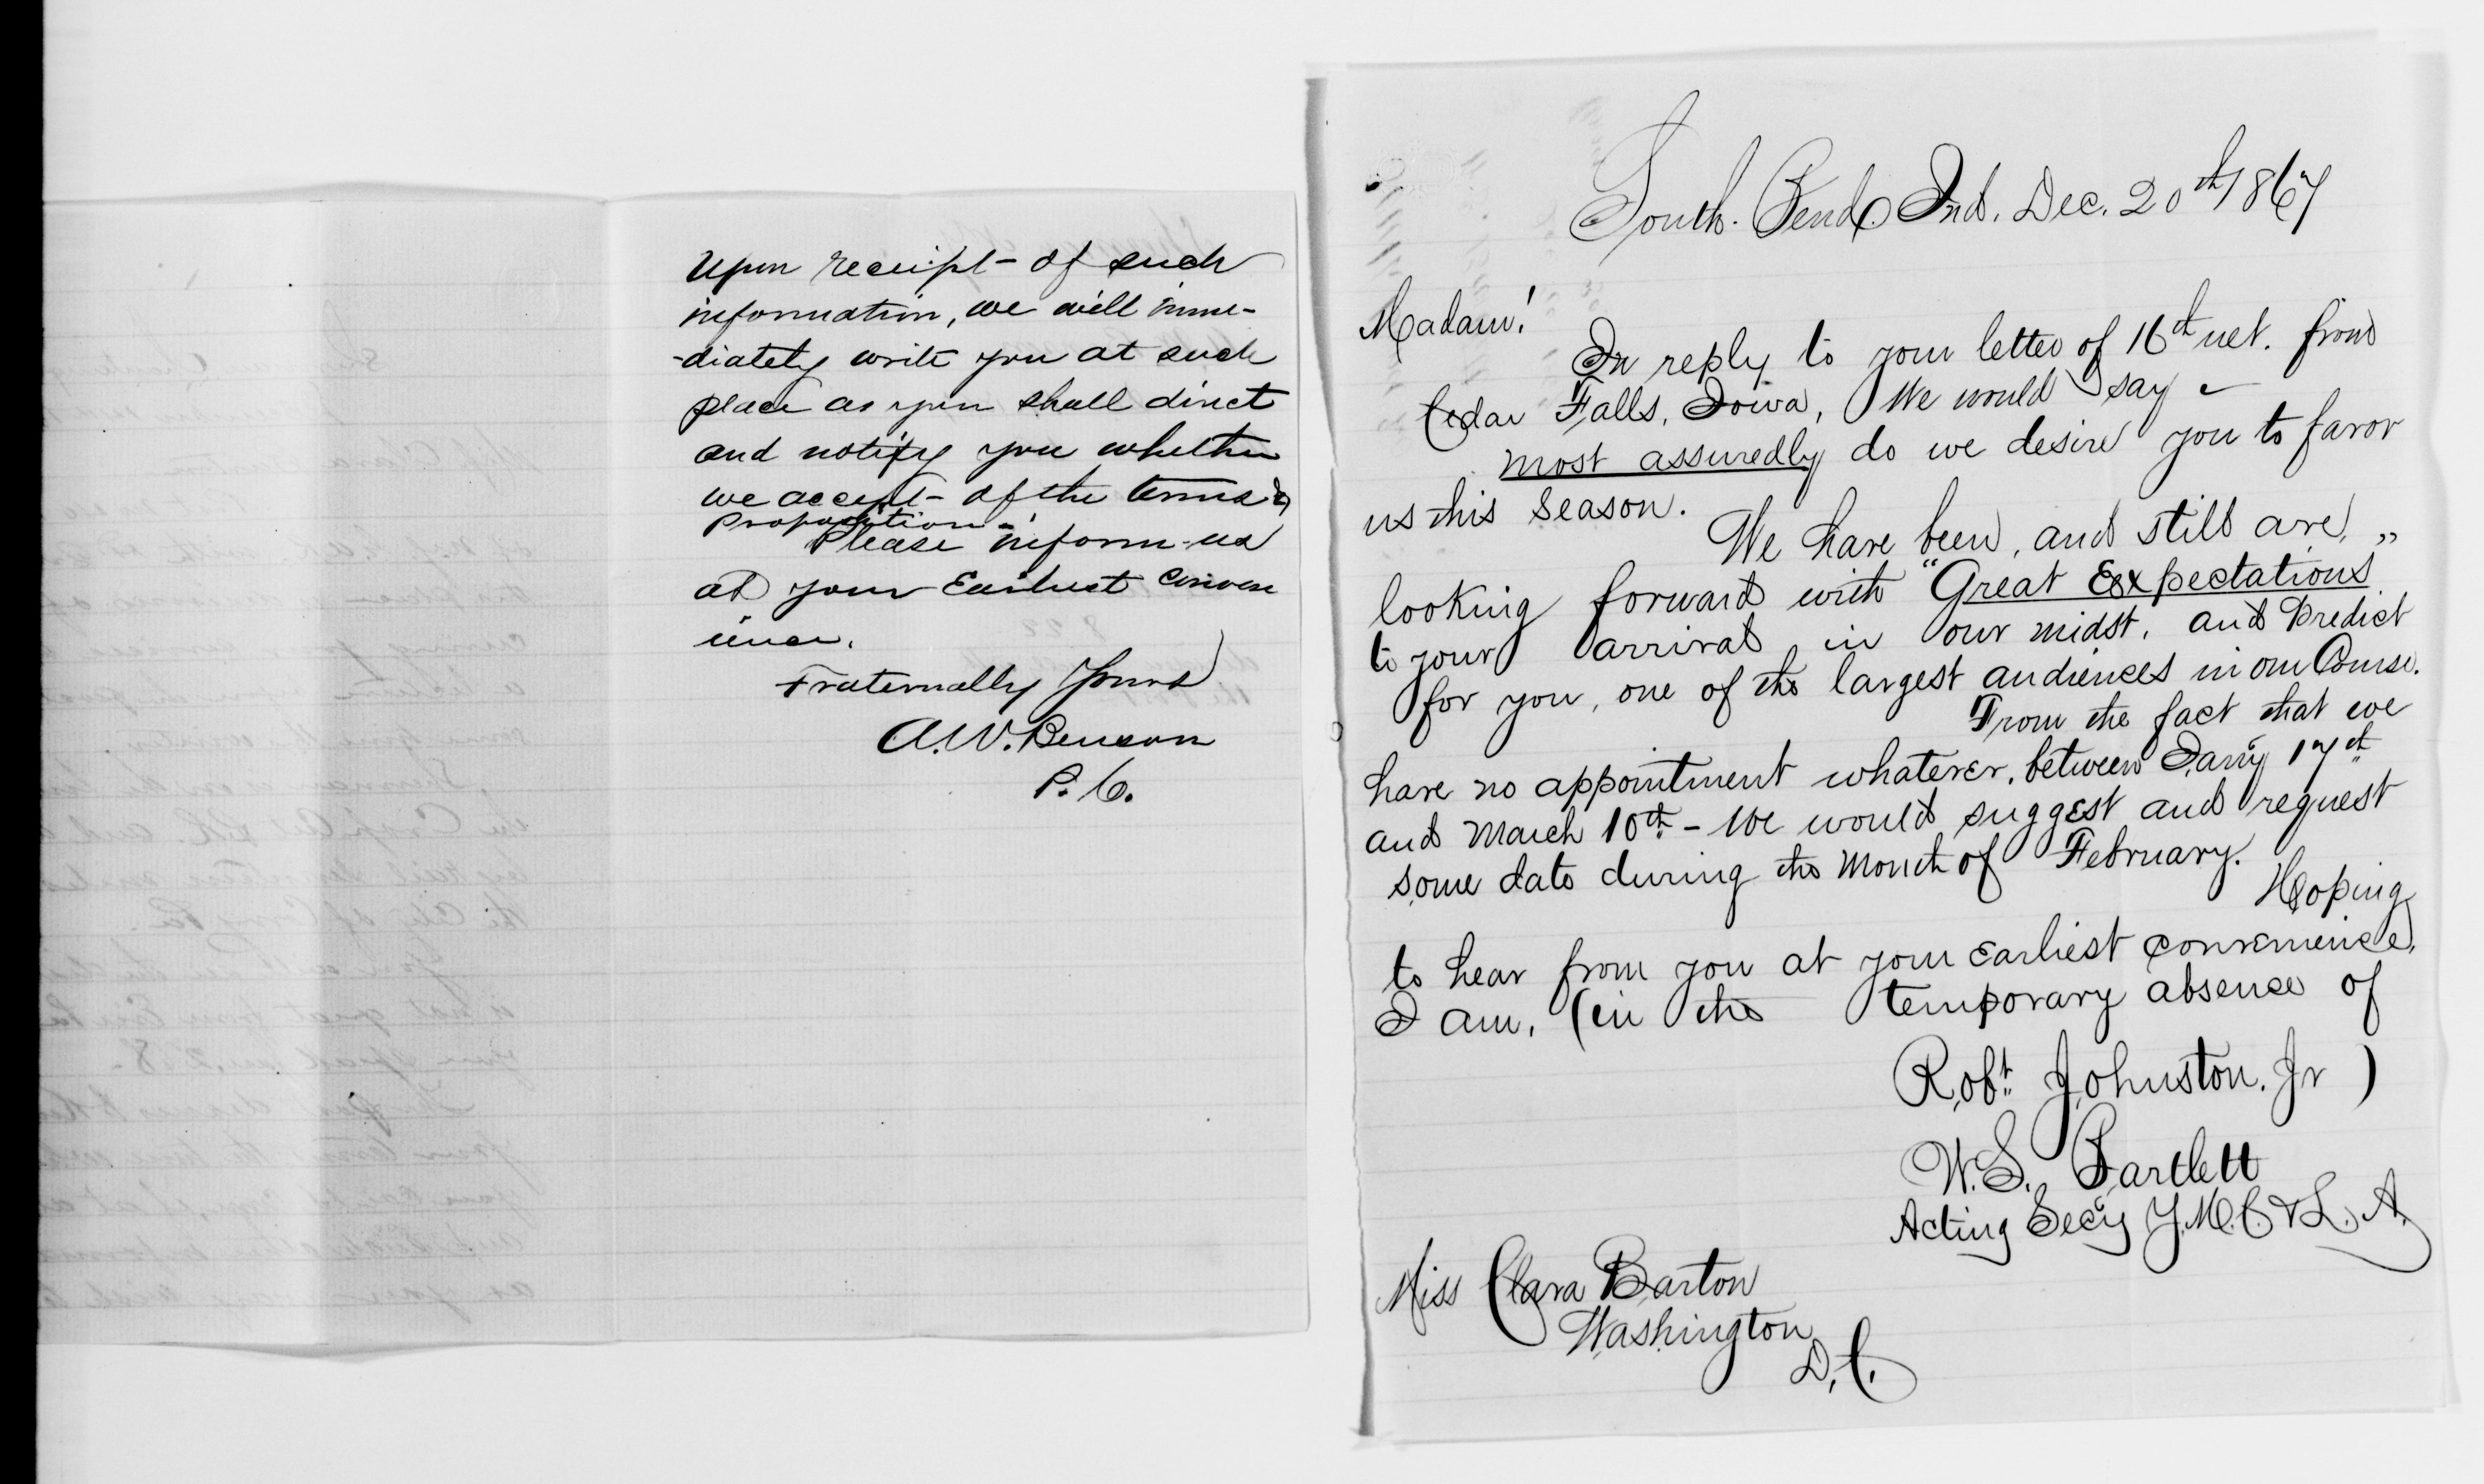 Upon receipt of such
information, we will imme-
-diately write you at such
place as you shall direct
and notify you whether
we accept of the terms &
proposition -
Please inform us
at your Earliest conven
ience.
Fraternally Yours
A. W. Benson
P. C.
South. Bend. Ind. Dec. 20th 1867
Madam!
In reply to your letter of 16th ult. from
Cedar Falls, Iowa, We would say -
most assuredly do we desire you to favor
us this season.
We have been, and still are,
looking forward with "Great Expectations"
to your arrival in our midst, and predict
for you, one of the largest audiences in our Course.
From the fact that we
have no appointment whatever, between Jany 17th
and March 10th - We would suggest and request
some date during the month of February.
Hoping
to hear from you at your earliest convenience,
I am, (in the temporary absence of
Robt. Johnston. Jr )
W. S. Bartlett
Acting Secy Y. M. C. & L. A.
Miss Clara Barton
Washington
D. C.